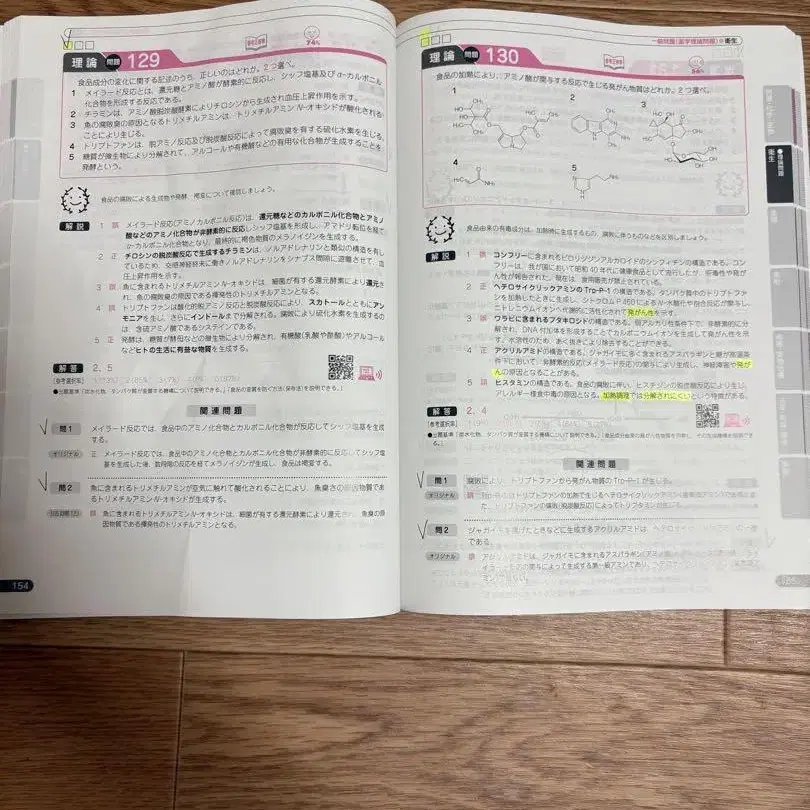 理論 問題 129
74%
食品成分の変化に関する記述のうち、正しいのはどれか。2つ選べ。
1 メイラード反応とは、還元糖とアミノ酸が酵素的に反応し、シッフ塩基及びα-カルボニル
化合物を形成する反応である。
2 チラミンは、アミノ酸脱炭酸酵素によりチロシンから生成され血圧上昇作用を示す。
3 魚の腐敗臭の原因となるトリメチルアミンは、トリメチルアミン N-オキシドが酸化される
ことにより生じる。
4 トリプトファンは、脱アミノ反応及び脱炭酸反応によって腐敗臭を有する硫化水素を生じる。
5 糖質が微生物により分解されて、アルコールや有機酸などの有用な化合物が生成することを
発酵という。
食品の腐敗による生成物や発酵、褐変について確認しましょう。
解説
1 誤 メイラード反応(アミノカルボニル反応)は、還元糖などのカルボニル化合物とアミノ
酸などのアミノ化合物が非酵素的に反応しシッフ塩基を形成し、アマドリ転位を経て
α-カルボニル化合物となり、最終的に褐色物質のメラノイジンを生成する。
2 正 チロシンの脱炭酸反応で生成するチラミンは、ノルアドレナリンと類似の構造を有し
ているため、交感神経終末に働きノルアドレナリンをシナプス間隙に遊離させて、血
圧上昇作用を示す。
3 誤 魚に含まれるトリメチルアミン-N-オキシドは、細菌が有する還元酵素により還元さ
れ、魚の腐敗臭の原因である揮発性のトリメチルアミンとなる。
4 誤 トリプトファンは酸化的脱アミノ反応と脱炭酸反応により、スカトールとともにアン
モニアを生じ、さらにインドールまで分解される。腐敗により硫化水素を生成するの
は、含硫アミノ酸であるシステインである。
5 正 発酵は、糖質が酵母などの微生物により分解され、有機酸(乳酸や酢酸)やアルコール
などヒトの生活に有益な物質を生成する。
解答 2、5
関連問題
問1 メイラード反応では、食品中のアミノ化合物とカルボニル化合物が反応してシッフ塩基を生成
する。
オリジナル 正 メイラード反応では、食品中のアミノ化合物とカルボニル化合物が非酵素的に反応してシッフ塩
基を生成した後、数段階の反応を経てメラノイジンが生成し、食品は褐変する。
問2 魚に含まれるトリメチルアミンが空気に触れて酸化されることにより、魚臭さの原因物質であ
るトリメチルアミン-N-オキシドが生成する。
誤 魚に含まれるトリメチルアミン-N-オキシドは、細菌が有する還元酵素により還元され、魚臭の原
因物質である揮発性のトリメチルアミンとなる。
154
一般問題(薬学理論問題) 衛生
理論 問題 130
食品の加熱により、アミノ酸が関与する反応で生じる発がん物質はどれか。2つ選べ。
1
2
3
4
5
食品由来の有毒成分は、加熱時に生成するもの、腐敗に伴うものなどを区別しましょう。
解説
1 誤 コンフリーに含まれるピロリジジンアルカロイドのシンフィチンの構造である。コン
フリーは、我が国において昭和40年代に健康食品として流行したが、肝毒性や発が
ん性が報告された。現在は、食用販売が禁止されている。
2 正 ヘテロサイクリックアミンの Trp-P-1 の構造である。タンパク質中のトリプトファ
ンを加熱したときに生成し、シトクロムP450によるN-水酸化や抱合反応が関与し
ニトレニウムイオンへ代謝的に活性化されて発がん性を示す。
3 誤 ワラビに含まれるプタキロシドの構造である。弱アルカリ性条件下で、非酵素的に分
解され、DNA付加体を形成することでカルボニウムイオンを生成して発がん性を示
す。水溶性のため、あく抜きにより除去することができる。
4 正 アクリルアミドの構造である。ジャガイモに多く含まれるアスパラギンと糖が高温条
件下において、非酵素的反応(メイラード反応)の関与により生成し、神経障害や発が
んの原因となることがある。
5 誤 ヒスタミンの構造である。食品の腐敗に伴い、ヒスチジンの脱炭酸反応により生じ、
アレルギー様食中毒の原因となる。加熱調理では分解されにくいという特徴がある。
解答 2、4
関連問題
問1 腐敗により、トリプトファンから発がん物質の Trp-P-1 が生じる。
オリジナル 誤
問2
オリジナル 誤
衛生